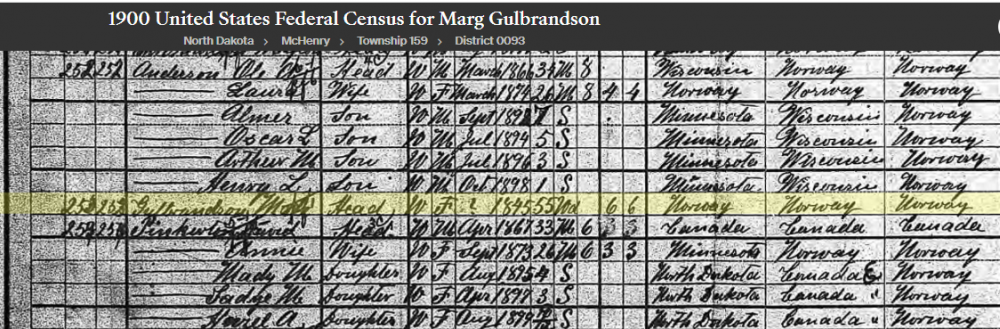 1900 United States Federal Census for Marg Gulbrandson
North Dakota > McHenry > Township 159 > District 0093
252 252 Anderson Ole Head W M March 1866 34 M 8 Wisconsin Norway Norway
Laura Wife W F March 1874 26 M 8 4 4 Norway Norway Norway
Almer Son W M Sept 1892 7 S Minnesota Wisconsin Norway
Oscar L Son W M Jul 1894 5 S Minnesota Wisconsin Norway
Arthur M Son W M Jul 1896 3 S Minnesota Wisconsin Norway
Henry L Son W M Oct 1898 1 S Minnesota Wisconsin Norway
253 253 Gulbrandson Head W F ? 1845 55 Wd 6 6 Norway Norway Norway
David Head W M Apr 1867 33 M 6 Canada Canada Canada
Annie Wife W F Sept 1873 26 M 6 3 3 Minnesota Norway Norway
M Daughter W F Aug 1895 4 S North Dakota Canada E Norway
Sadie M Daughter W F Apr 1897 3 S North Dakota Canada " Norway
Hazel A Daughter W F Aug 1899 S North Dakota Canada " Norway